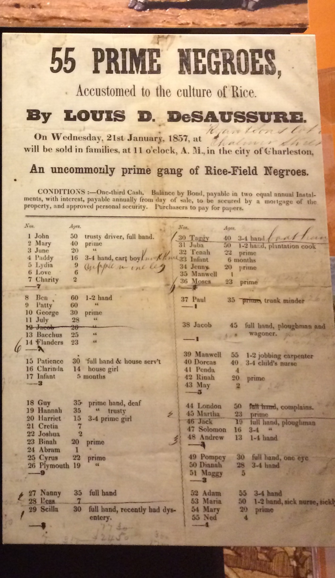 55 PRIME NEGROES,
Accustomed to the culture of Rice.
By LOUIS D. DeSAUSSURE.
On Wednesday, 21st January, 1857, at
will be sold in families, at 11 o'clock, A. M., in the city of Charleston,
An uncommonly prime gang of Rice-Field Negroes.
CONDITIONS :—One-third Cash. Balance by Bond, payable in two equal annual Instal-
ments, with interest, payable annually from day of sale, to be secured by a mortgage of the
property, and approved personal security. Purchasers to pay for papers.
No. Age.
1 John 50 trusty driver, full hand.
2 Mary 40 prime
3 June 20 "
4 Paddy 16 3-4 hand, cart boy
5 Lydia 9
6 Love 6
7 Charity 2
—7
8 Ben 60 1-2 hand
9 Patty 60 "
10 George 30 prime
11 July 28 "
12 Jacob
13 Bacchus 25 "
14 Flanders 23
15 Patience 30 full hand & house serv't
16 Clarinda 14 house girl
17 Infant 8 months
—3
18 Guy 35 prime hand, deaf
19 Hannah 35 " trusty
20 Harriet 15 3-4 prime girl
21 Cretia 7
22 Joshua 2
23 Binah 20 prime
24 Abram 1
25 Cyrus 22 prime
26 Plymouth 19 "
—9
27 Nanny 35 full hand
28 7
29 Scilla 30 full hand, recently had dys-
entery.
No. Age.
30 Taggy 40 3-4 hand
31 Julia 50 1-2 hand, plantation cook
32 22 prime
33 Infant 6 months
34 20 prime
35 Maxwell 1
36 Moses 23 prime
37 Paul 35 prime, trunk minder
38 Jacob 45 full hand, ploughman and
wagoner.
—1
39 Maxwell 55 1-2 jobbing carpenter
40 Dorcas 40 3-4 child's nurse
41 Penda 4
42 Rinah 20 prime
43 May 2
44 London 50 full hand, complains.
45 Martha 23 prime
46 Jack 19 full hand, ploughman
47 Solomon 16 3-4 "
48 Andrew 13 1-4 hand
49 Pompey 30 full hand, one eye
50 Dianah 28 3-4 hand
51 Maggy 5
52 Adam 55 3-4 hand
53 Maria 50 1-2 hand, sick nurse,
54 Mary 20 prime
55 Ned 4